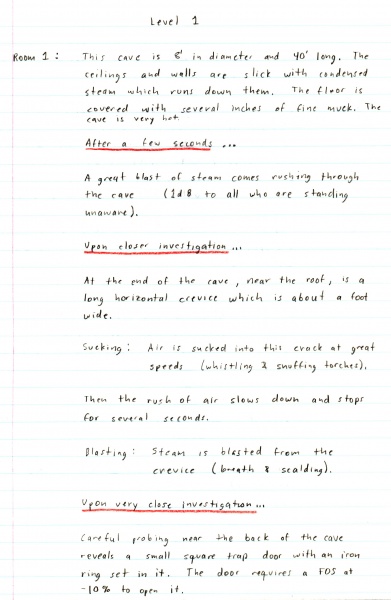 Level 1
Room 1: This cave is 8' in diameter and 40' long. The
ceilings and walls are slick with condensed
steam which runs down them. The floor is
covered with several inches of fine muck. The
cave is very hot.
After a few seconds ...
A great blast of steam comes rushing through
the cave (1d8 to all who are standing
unaware).
Upon closer investigation...
At the end of the cave, near the roof, is a
long horizontal crevice which is about a foot
wide.
Sucking: Air is sucked into this crack at great
speeds (whistling & snuffing torches).
Then the rush of air slows down and stops
for several seconds.
Blasting: Steam is blasted from the
crevice (breath & scalding).
Upon very close investigation...
Careful probing near the back of the cave
reveals a small square trap door with an iron
ring set in it. The door requires a FOS at
-10% to open it.